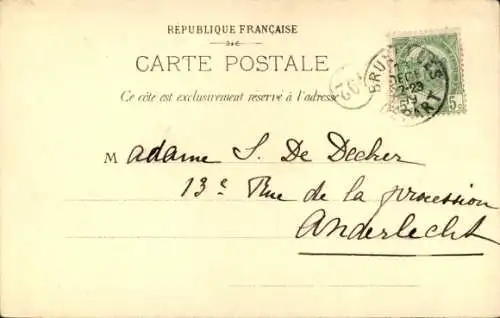 RÉPUBLIQUE FRANÇAISE
CARTE POSTALE
Ce côté est exclusivement réservé à l'adresse
BRUXELLES
DECE
DEPART
5 c
Madame S. De Decker
13e Rue de la procession
Anderlecht